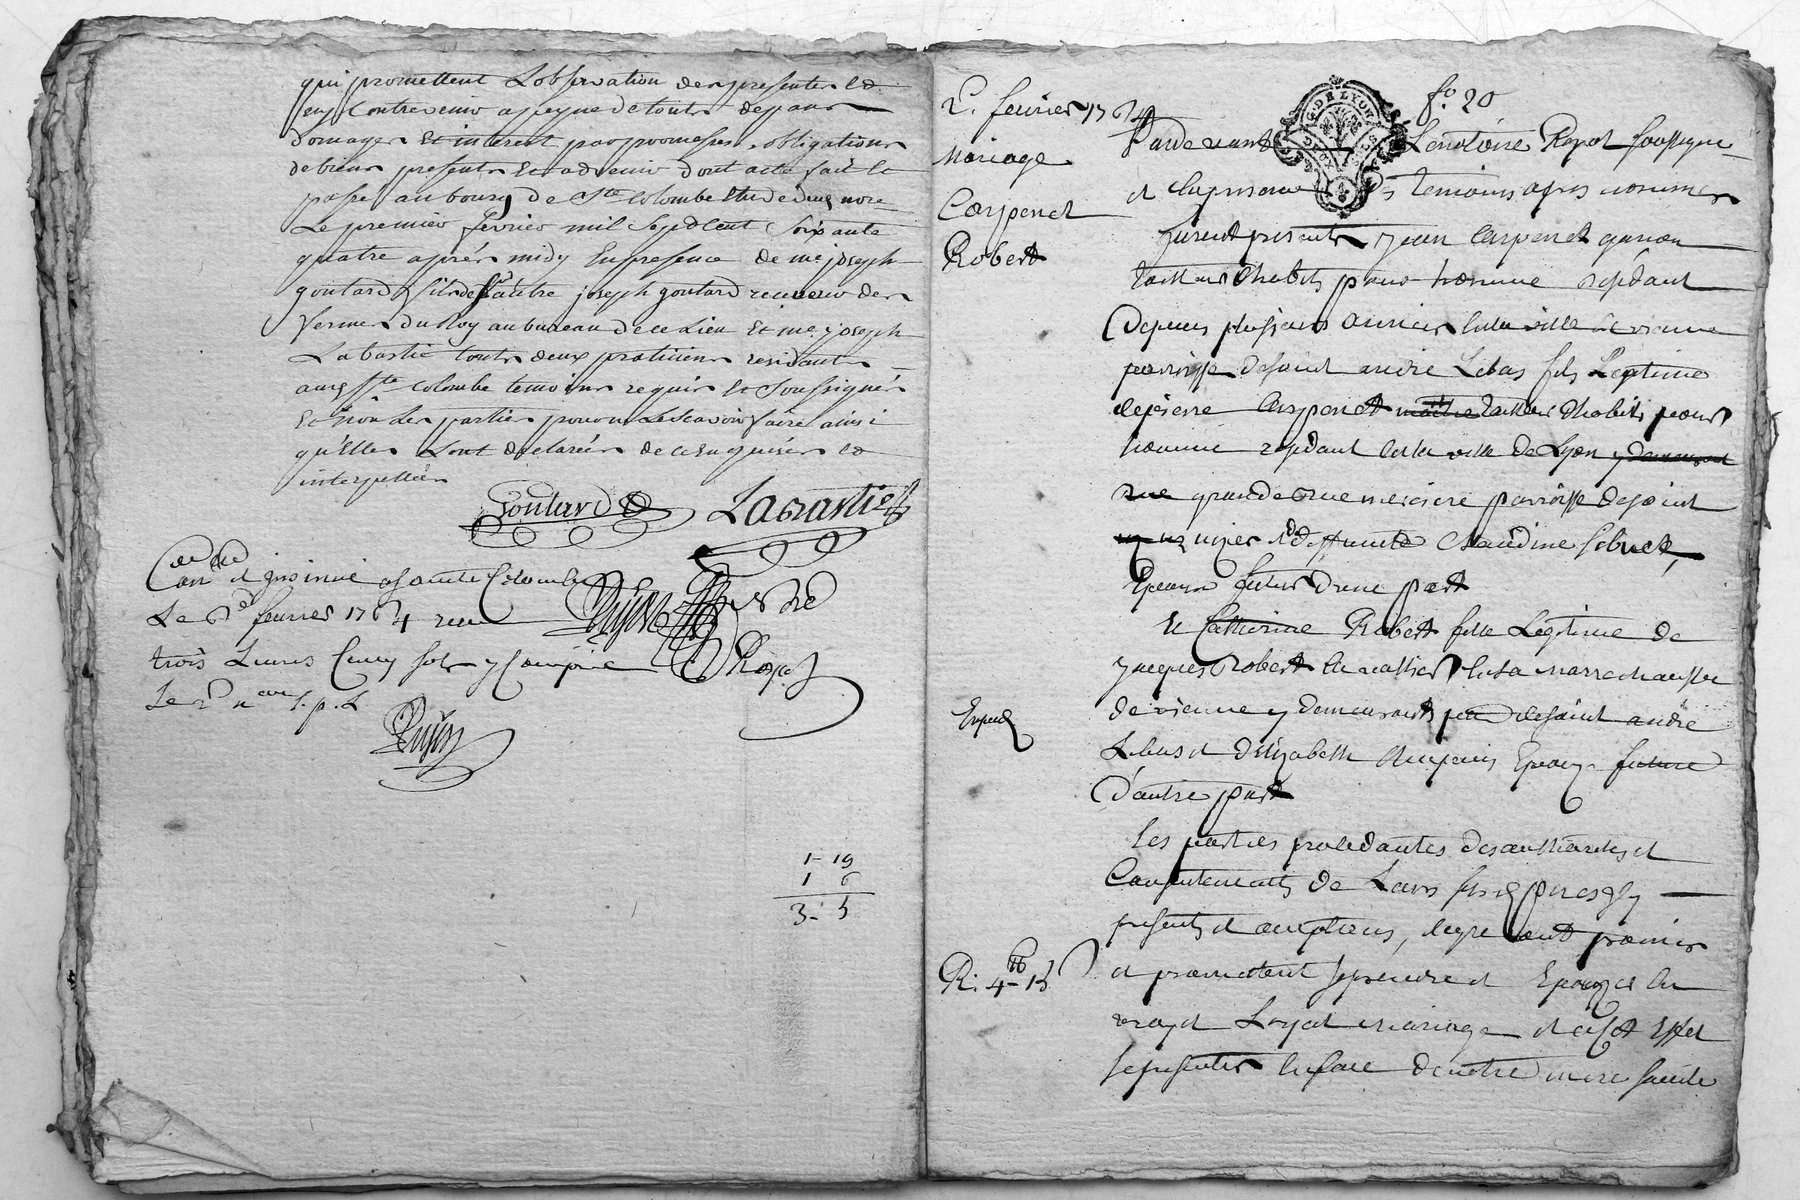 qui promettent L'observation des presentes et
ny Contrevenir a peyne de touts depans
Domages et interest par promesses, obligations
de biens presents et advenir Dont acte fait et
passé au bourg de Ste Colombe Etude du nore
Le premier fevrier mil Sept Cent Soixante
quatre après midy En presence de me joseph
goutard fils de autre joseph goutard receveur des
fermes Du Roy au bureau de ce Lieu Et me joseph
Labastie touts deux praticiens residants
aud Ste Colombe temoins requis et Soussignés
Et non Les parties pour ne Le Scavoir faire ainsi
qu'elles L'ont declarées de ce Enquises et
interpellées
Goutard Labastie
Con.lé et a Sainte Colombe
Le fevrier 1764 reçu
trois Livres Cinq Sols y Compris
Le
1 - 19
1 6
3 - 5
2e. fevrier 1764
f.o 20
G. DE LYON
Mariage
Carpenet
Robert
Pardevant Le notaire Royal Soussigné
et En presence des temoins apres nommés
furent presents jean Carpenet garçon
tailleur d'habits pour homme residant
Depuis plusieurs années En la ville de vienne
parroisse De saint andré Lebas fils Legitime
de pierre Carpenet maitre tailleur d'habits pour
homme residant En la ville De Lyon y demeurant
rue grande rue merciere parroisse de saint
nizier et de deffunte Claudine
Epoux futur D'une part
Et Catherine Robert fille Legitime de
jacques Robert Cavallier En la marrechaussée
de vienne y demeurants parr de saint andré
Lebas et D'Elizabeth Epouze future
D'autre part
Les parties procedantes Des authorités et
Consentements De Leurs peres
presents et acceptants, de gré ont promis
et promettent Se prendre et Epouzer En
vray et Loyal mariage et a cet Effet
Se presenter En face De notre mere Sainte
Exped
R. 4 - 13